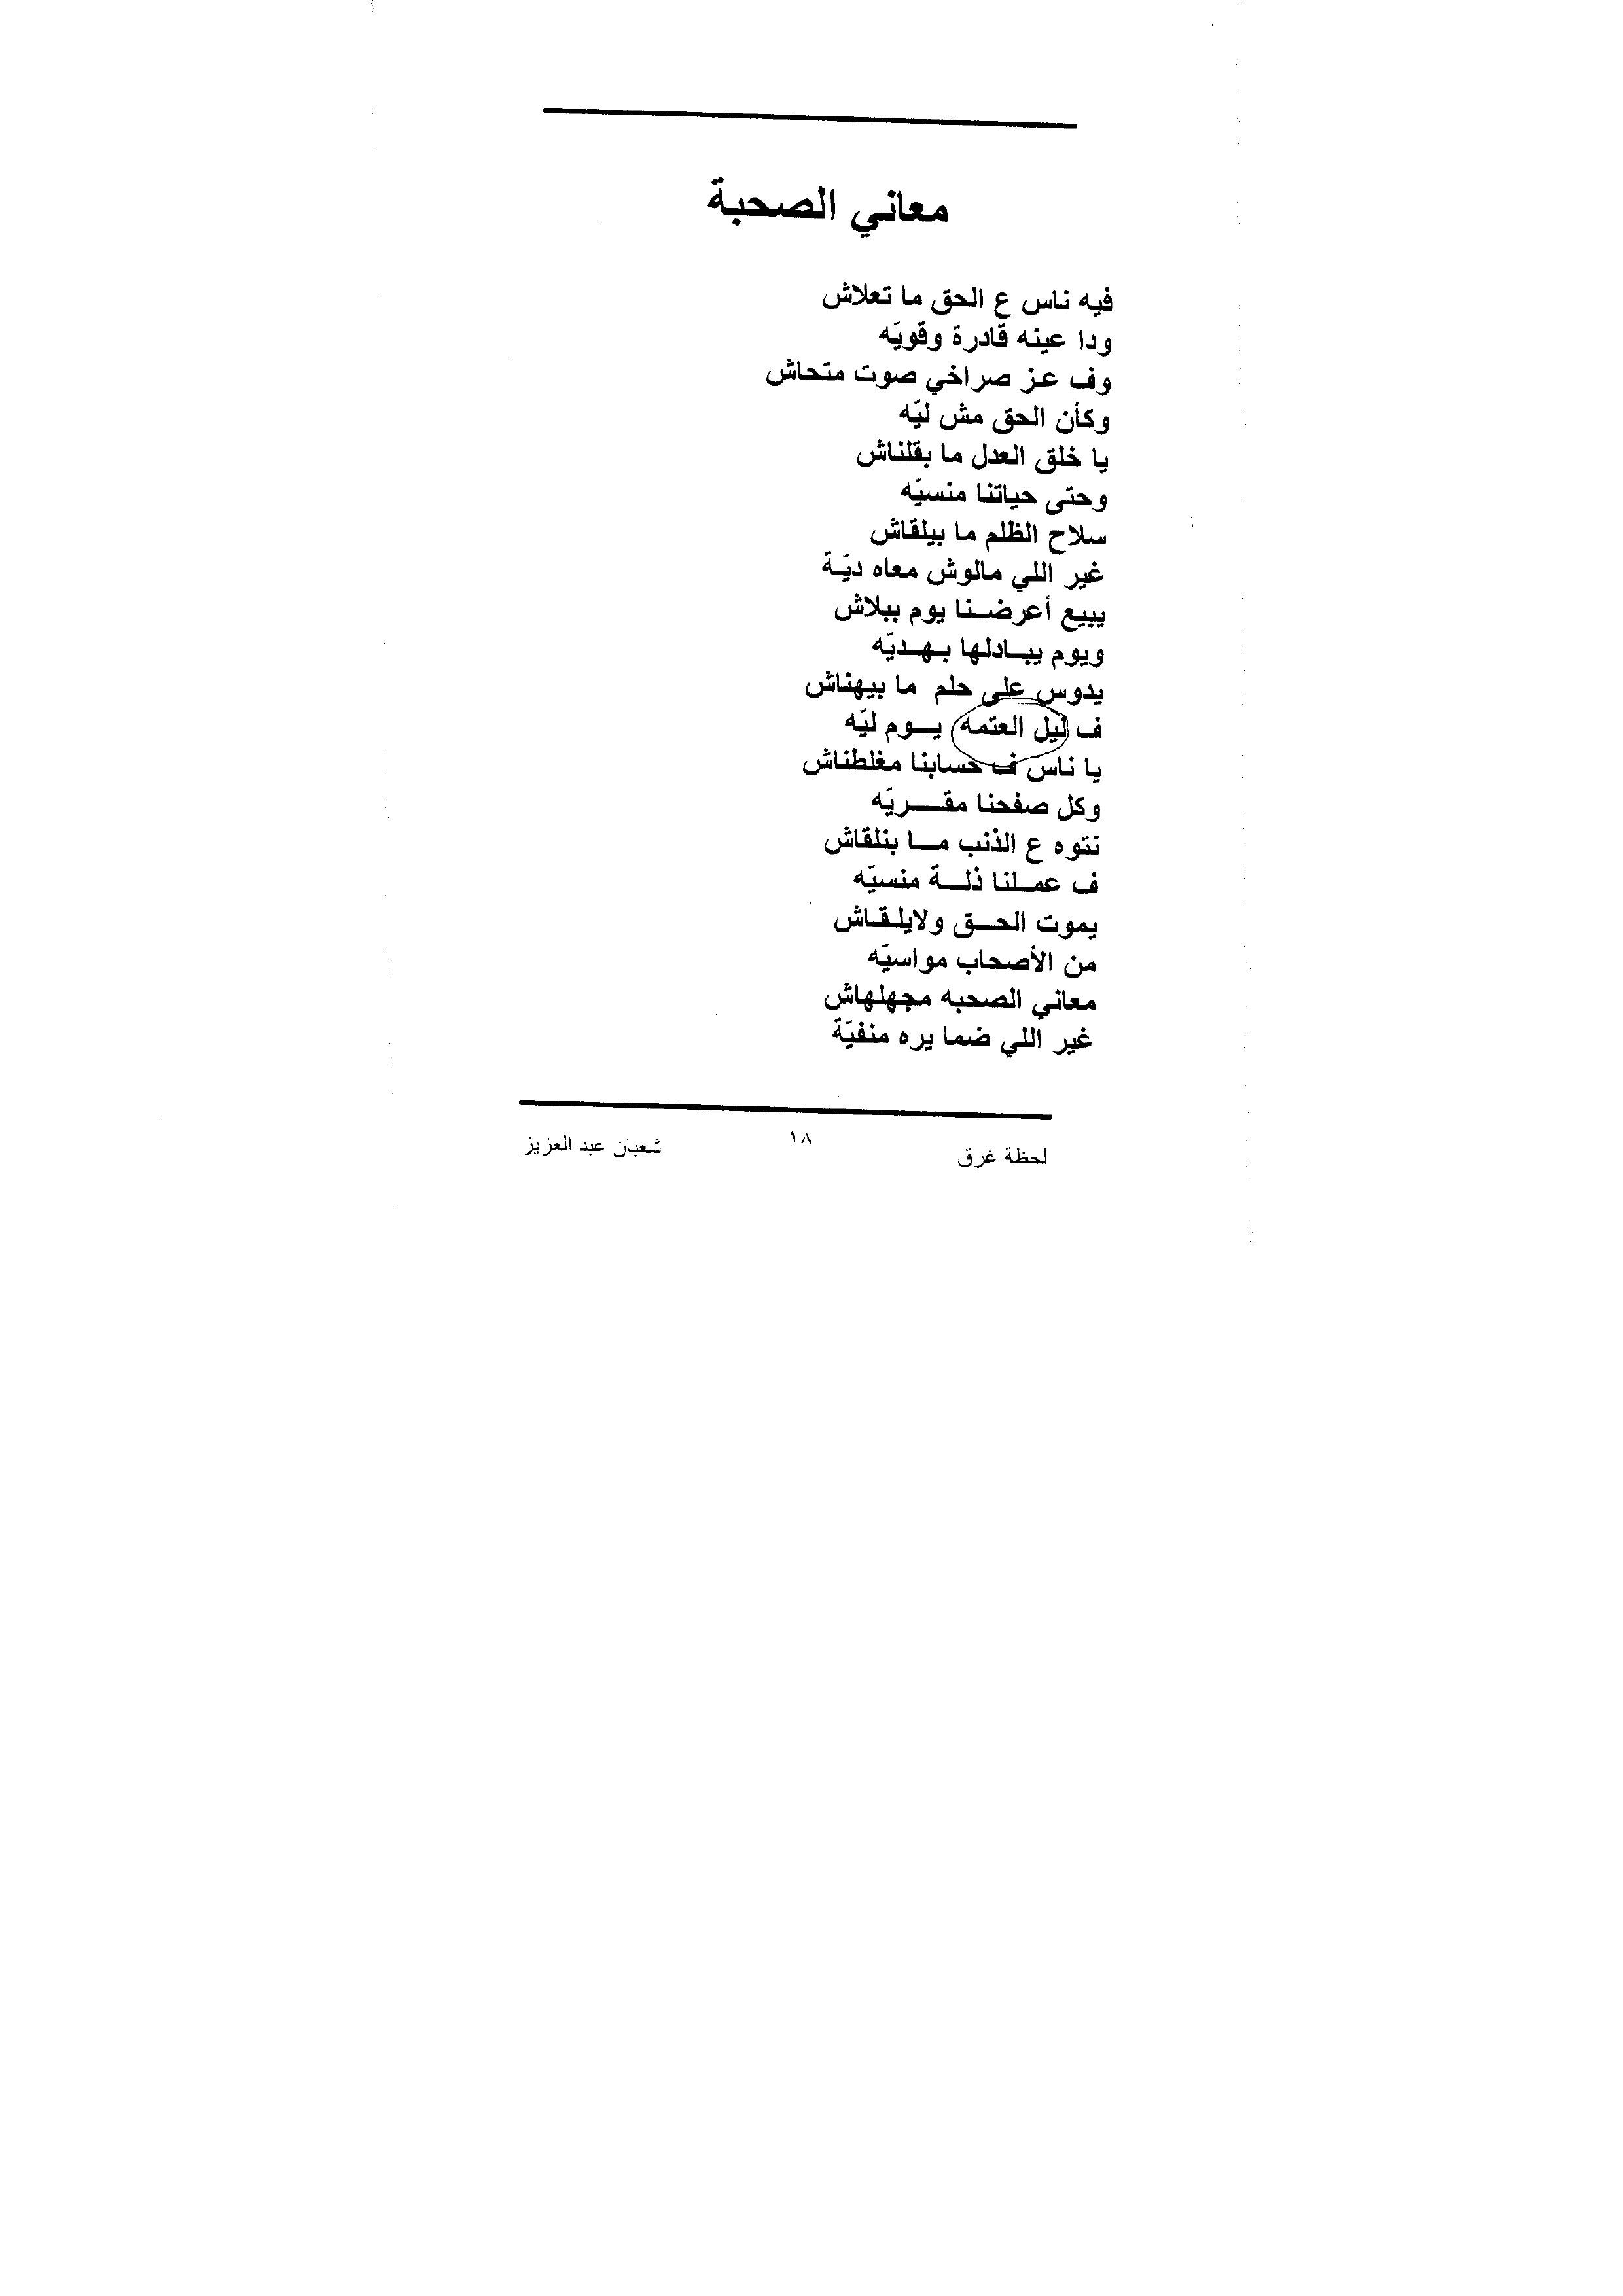 معاني الصحبة
فيه ناس ع الحق ما تعلاش
ودا عينه قادرة وقويّه
وف عز صراخي صوت متحاش
وكأن الحق مش ليّه
يا خلق العدل ما بقلناش
وحتى حياتنا منسيّه
سلاح الظلم ما بيلقاش
غير اللي مالوش معاه ديّة
يبيع أعرضنا يوم ببلاش
ويوم يبادلها بهديّه
يدوس على حلم ما بيهناش
ف ليل العتمه يوم ليّه
يا ناس ف حسابنا مغلطناش
وكل صفحنا مقريّه
نتوه ع الذنب ما بنلقاش
ف عملنا ذلة منسيّه
يموت الحق ولايلقاش
من الأصحاب مواسيّه
معاني الصحبه مجهلهاش
غير اللي ضما يره منفيّة
لحظة غرق ١٨ شعبان عبد العزيز